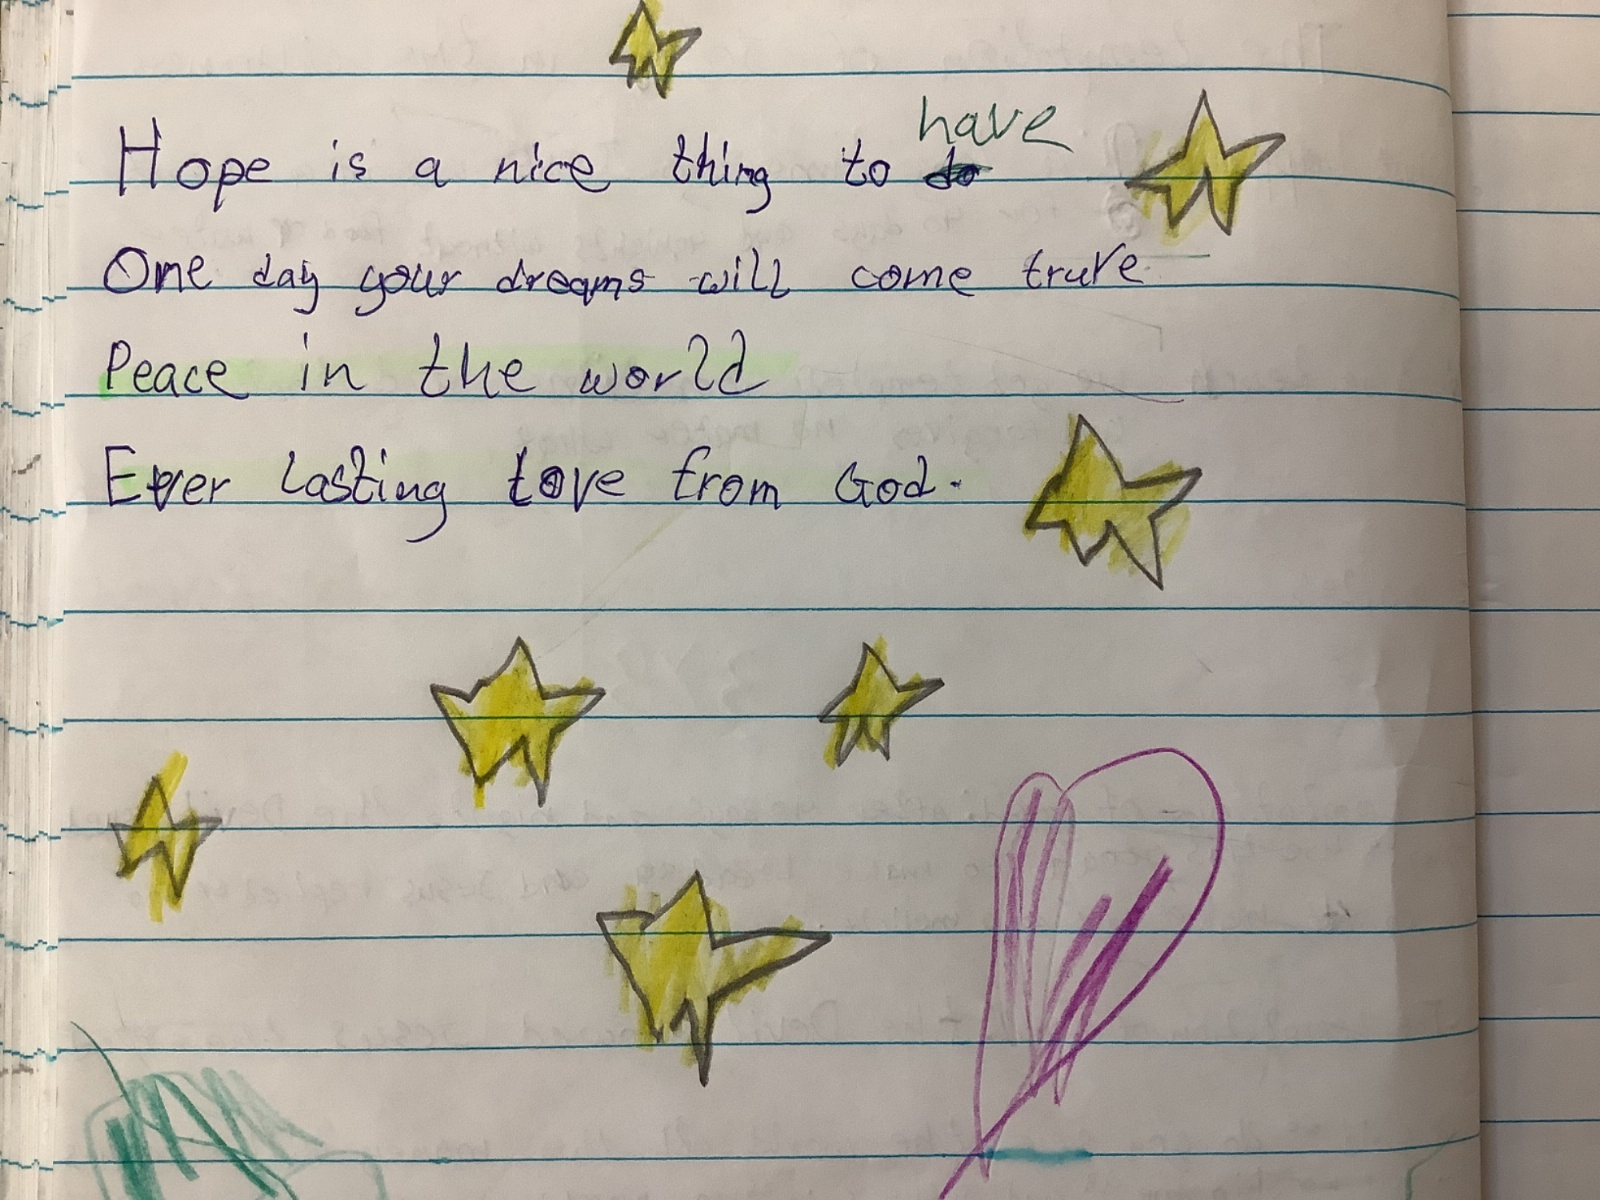 Hope is a nice thing to have
One day your dreams will come trure.
Peace in the world
Ever lasting Love from God.